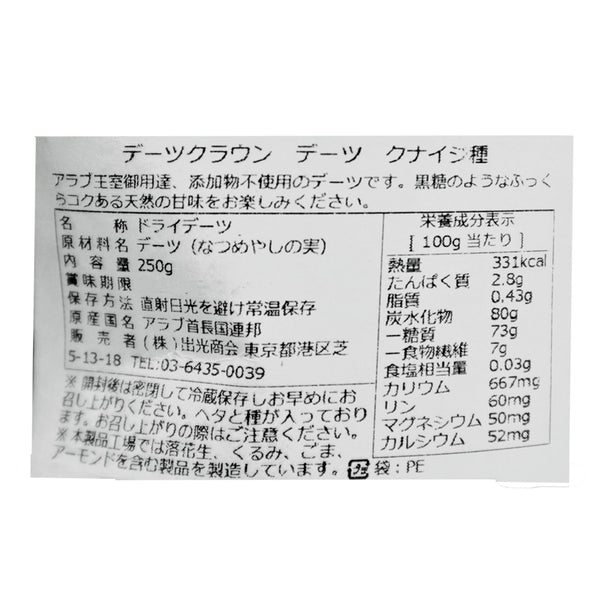 デーツクラウン デーツ クナイジ種
アラブ王室御用達、添加物不使用のデーツです。黒糖のようなふっく
らコクある天然の甘味をお楽しみください。
名 称 ドライデーツ
原材料名 デーツ（なつめやしの実）
内 容 量 250g
賞味期限
保存方法 直射日光を避け常温保存
原産国名 アラブ首長国連邦
販 売 者 （株）出光商会 東京都港区芝
5-13-18 TEL:03-6435-0039
※ 開封後は密閉して冷蔵保存しお早めにお
召し上がりください。ヘタと種が入っており
ます。お召し上がりの際はご注意ください。
※ 本製品工場では落花生、くるみ、ごま、
アーモンドを含む製品を製造しています。 プラ 袋：PE
栄養成分表示
[ 100g 当たり ]
熱量 331kcal
たんぱく質 2.8g
脂質 0.43g
炭水化物 80g
―糖質 73g
―食物繊維 7g
食塩相当量 0.03g
カリウム 667mg
リン 60mg
マグネシウム 50mg
カルシウム 52mg